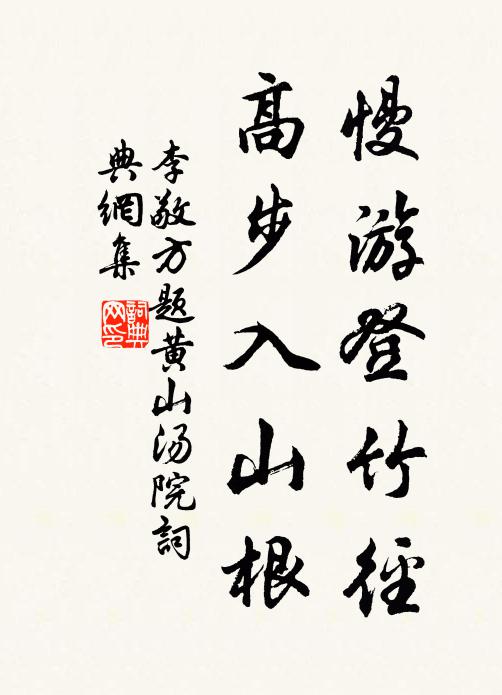 慢游登竹徑
高步入山根
李敬方題黄山汤院詞
典網集
詞典网印